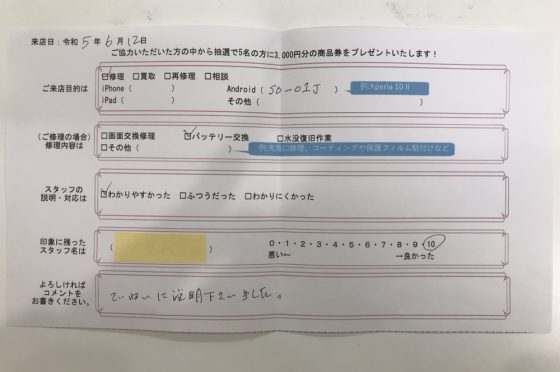 来店日：令和 5 年 6 月 12 日
ご協力いただいた方の中から抽選で5名の方に3,000円分の商品券をプレゼントいたします！
ご来店目的は
☑修理 □買取 □再修理 □相談
iPhone（ ） Android（ SO-01J ） 例:Xperia 10 II
iPad（ ） その他（ ）
（ご修理の場合）
修理内容は
□画面交換修理 ☑バッテリー交換 □水没復旧作業
□その他（ ） 例:充電口修理、コーティングや保護フィルム貼付けなど
スタッフの
説明・対応は
☑わかりやすかった □ふつうだった □わかりにくかった
印象に残った
スタッフ名は
（ ）
0・1・2・3・4・5・6・7・8・9・10
悪い← →良かった
よろしければ
コメントを
お書きください。
ていねいに説明下さいました。